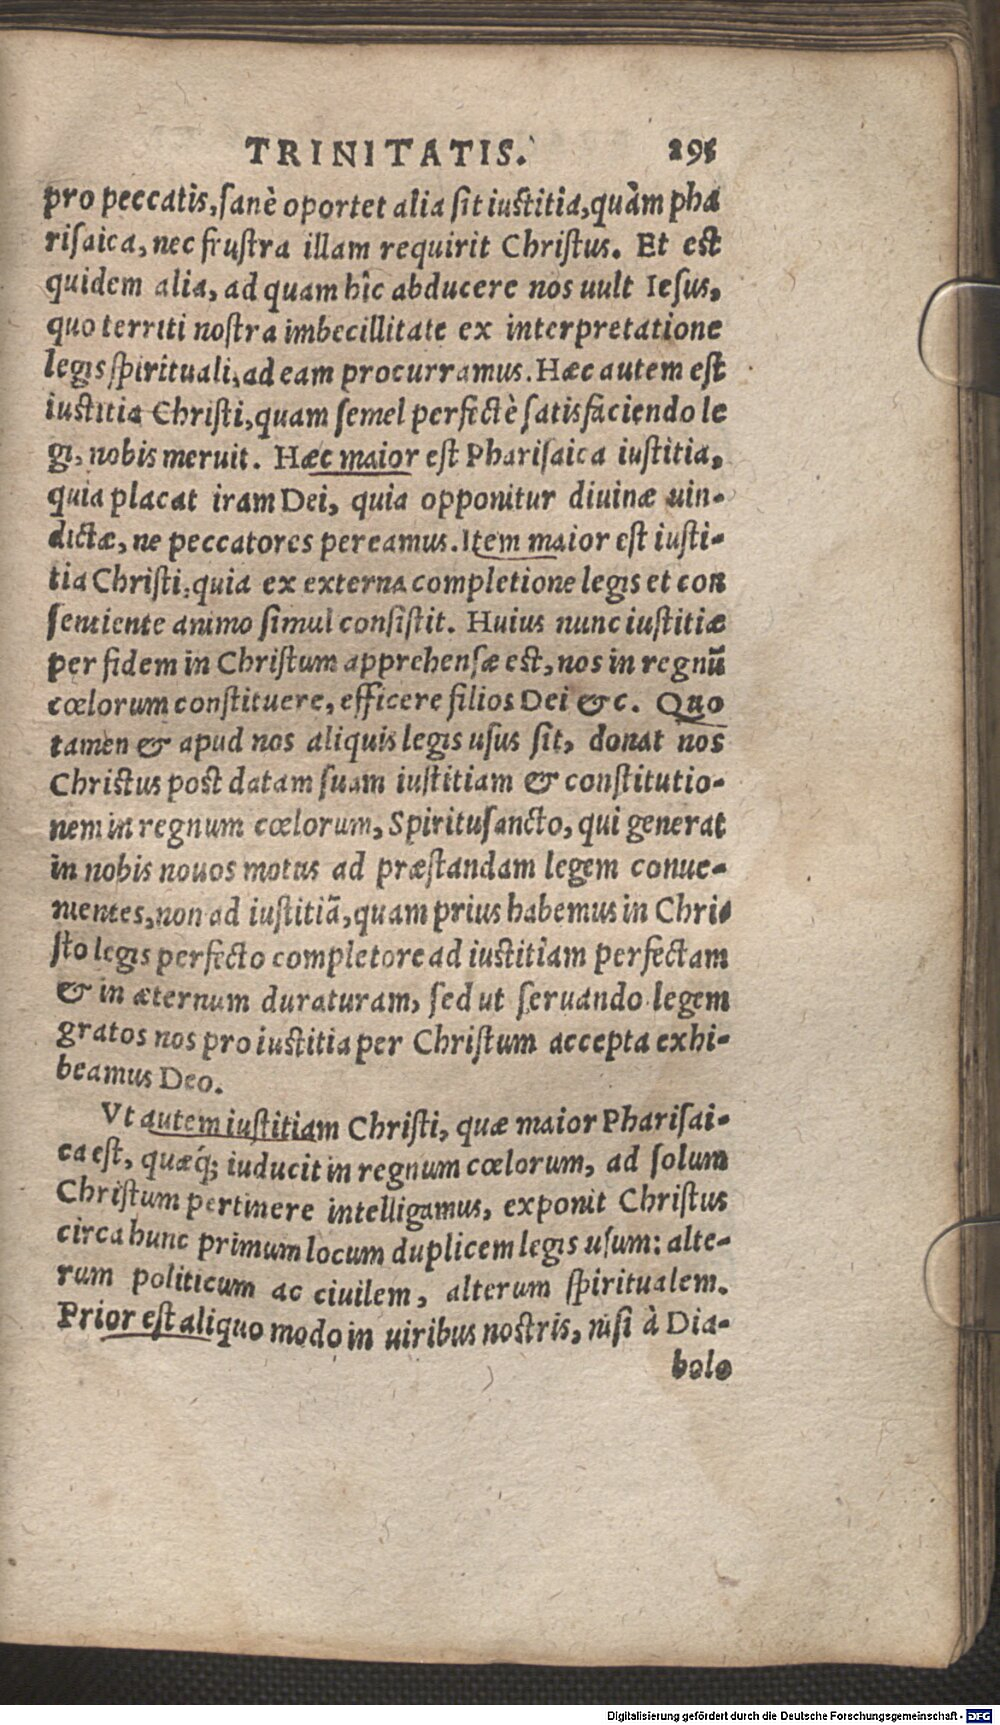 TRINITATIS. 295
pro peccatis, sanè oportet alia sit iustitia, quàm pha
risaica, nec frustra illam requirit Christus. Et est
quidem alia, ad quam hîc abducere nos uult Iesus,
quo territi nostra imbecillitate ex interpretatione
legis spirituali, ad eam procurramus. Hæc autem est
iustitia Christi, quam semel perfectè satisfaciendo le
gi, nobis meruit. Hæc maior est Pharisaica iustitia,
quia placat iram Dei, quia opponitur diuinæ uin-
dictæ, ne peccatores pereamus. Item maior est iusti-
tia Christi, quia ex externa completione legis et con
sentiente animo simul consistit. Huius nunc iustitiæ
per fidem in Christum apprehensæ est, nos in regnū
cœlorum constituere, efficere filios Dei &c. Quo
tamen & apud nos aliquis legis usus sit, donat nos
Christus post datam suam iustitiam & constitutio-
nem in regnum cœlorum, Spiritusancto, qui generat
in nobis nouos motus ad præstandam legem conue-
nientes, non ad iustitiã, quam prius habemus in Chri-
sto legis perfecto completore ad iustitiam perfectam
& in æternum duraturam, sed ut seruando legem
gratos nos pro iustitia per Christum accepta exhi-
beamus Deo.
Vt autem iustitiam Christi, quæ maior Pharisai-
ca est, quæq́; iuducit in regnum cœlorum, ad solum
Christum pertinere intelligamus, exponit Christus
circa hunc primum locum duplicem legis usum: alte-
rum politicum ac ciuilem, alterum spiritualem.
Prior est aliquo modo in uiribus nostris, nisi à Dia-
bolo
Digitalisierung gefördert durch die Deutsche Forschungsgemeinschaft - DFG